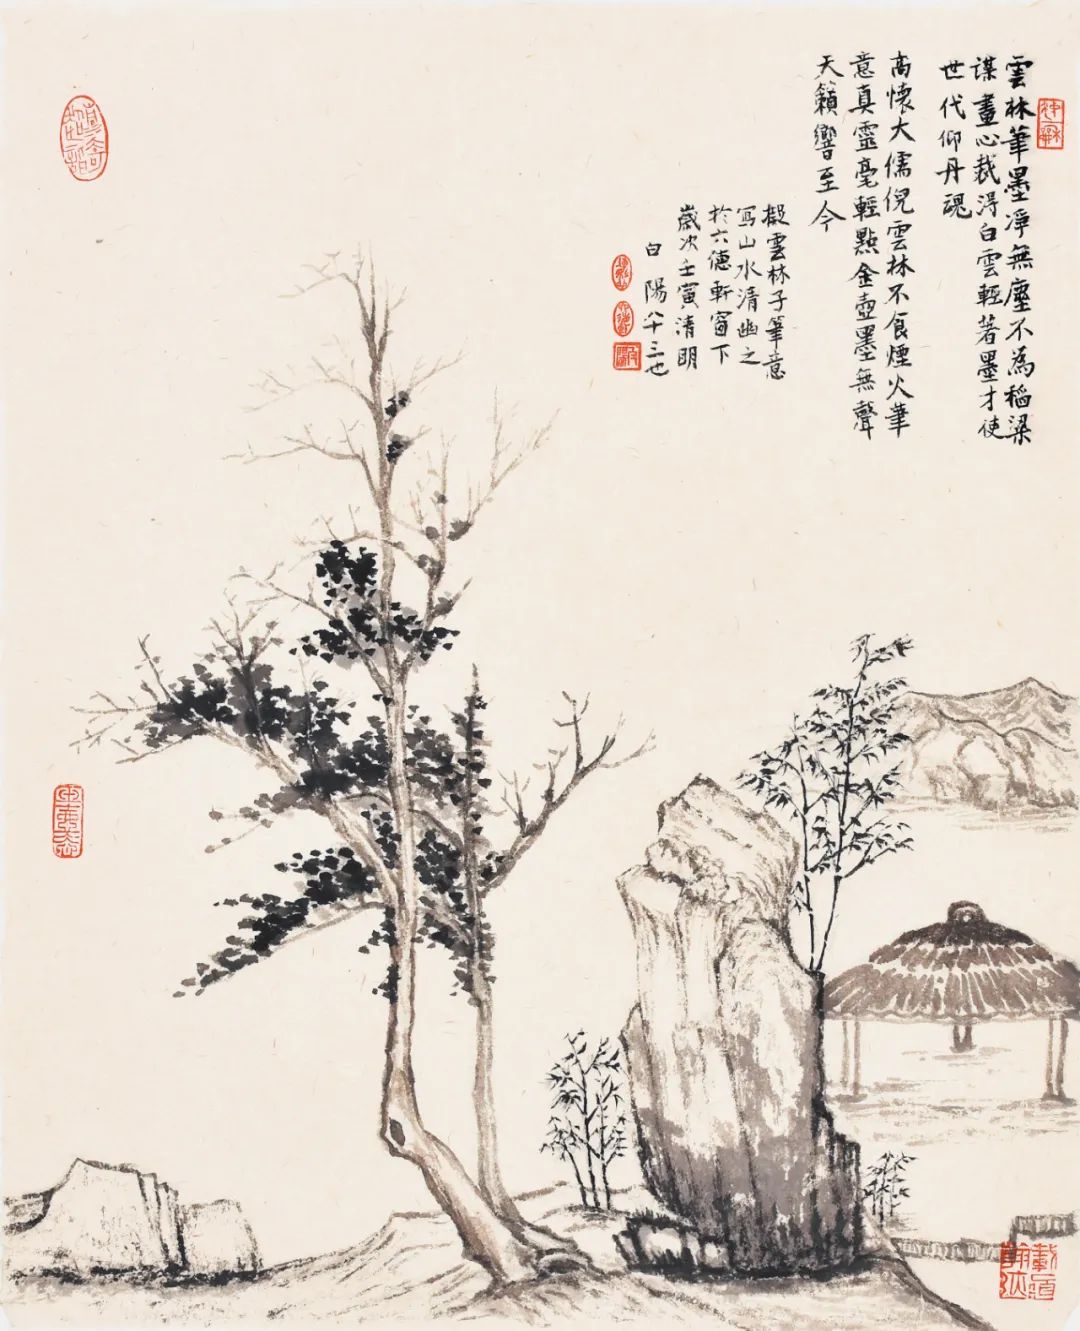 雲林筆墨凈無塵不為稻粱
謀畫心裁得白雲輕著墨才使
世代仰丹魂
高懷大儒倪雲林不食煙火筆
意真靈毫輕點金壺墨無聲
天籟響至今
擬雲林子筆意
寫山水清幽之
於六德軒窗下
歲次壬寅清明
白陽八十三也